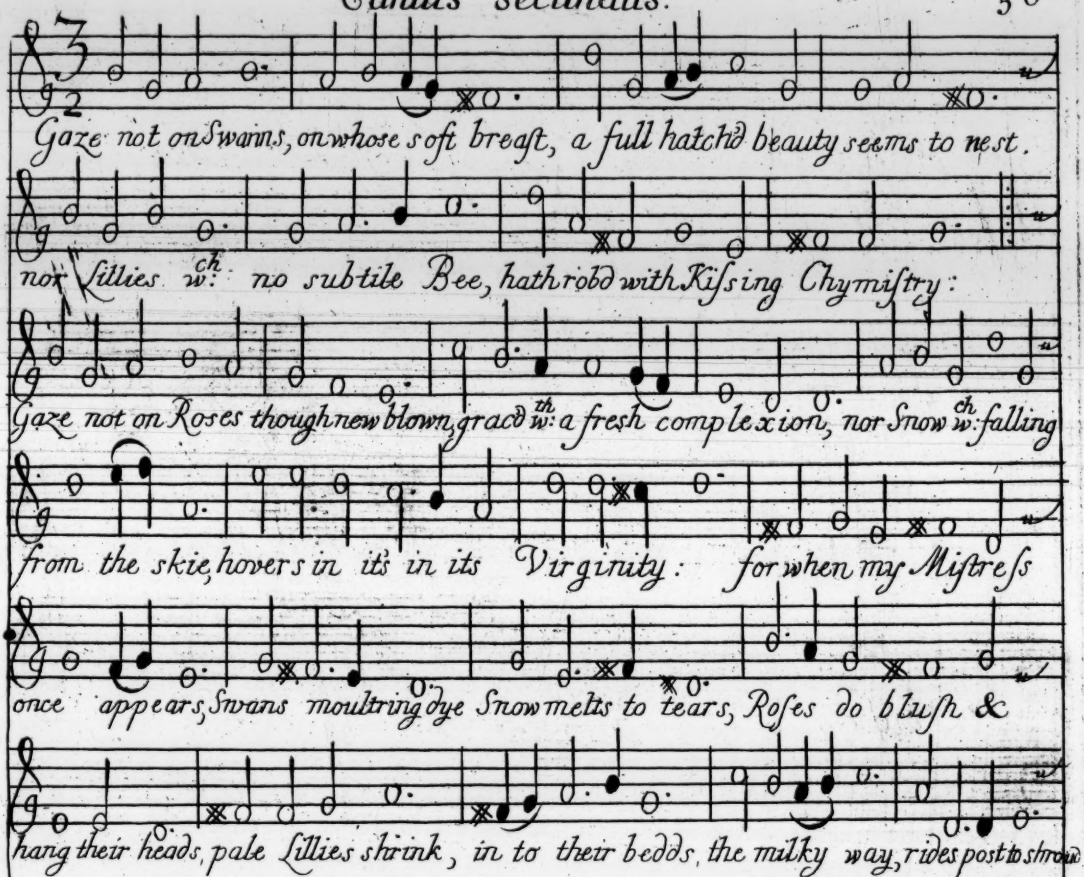 Cantus secundus.
3
2
Gaze not on Swanns, on whose soft breast, a full hatch'd beauty seems to nest.
nor Lillies wch: no subtile Bee, hath robd with Kissing Chymistry:
Gaze not on Roses though new blown, grac'd wth: a fresh complexion, nor Snow wch: falling
from the skie, hovers in it's in its Virginity: for when my Mistress
once appears, Swans moultring dye Snow melts to tears, Roses do blush &
hang their heads, pale Lillies shrink, in to their bedds, the milky way, rides post to shroud